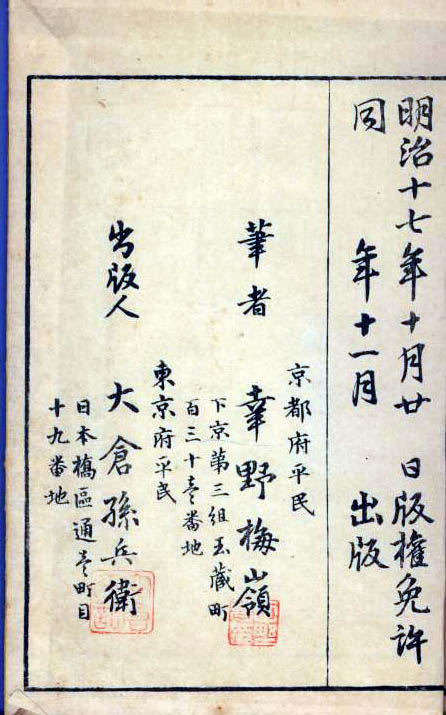 明治十七年十月廿 日版權免許
同 年十一月 出版
京都府平民
筆者 幸野楳嶺
下京第三組玉蔵町
百三十壱番地
東京府平民
出版人 大倉孫兵衛
日本橋區通壱町目
十九番地